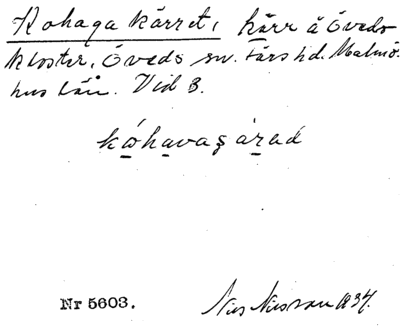 Kohaga kärret, kärr å Öveds
kloster, Öveds sn. Färs hd. Malmö-
hus län. Vid 3.
kóhavaşárad
Nr 5603.
Nils Nilsson 1934.